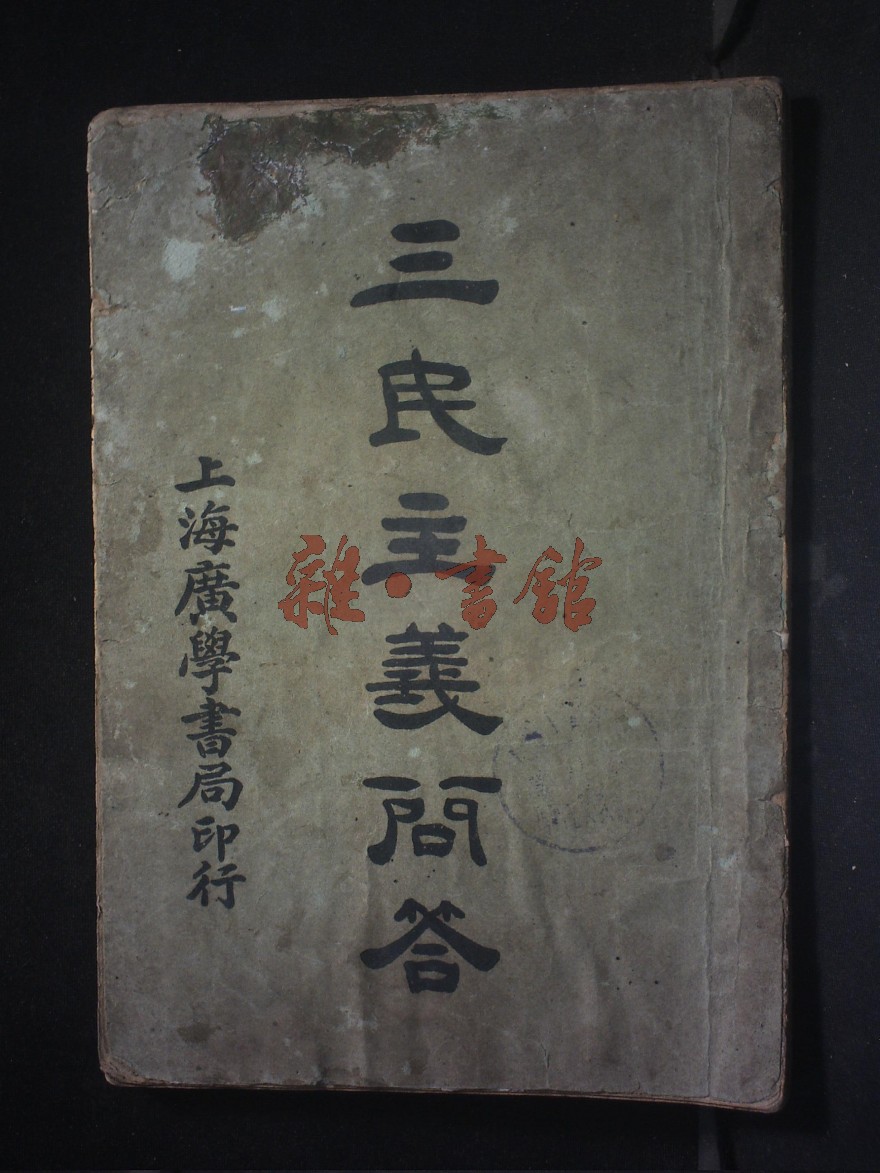 三民主義問答
上海廣學書局印行
雜·書館